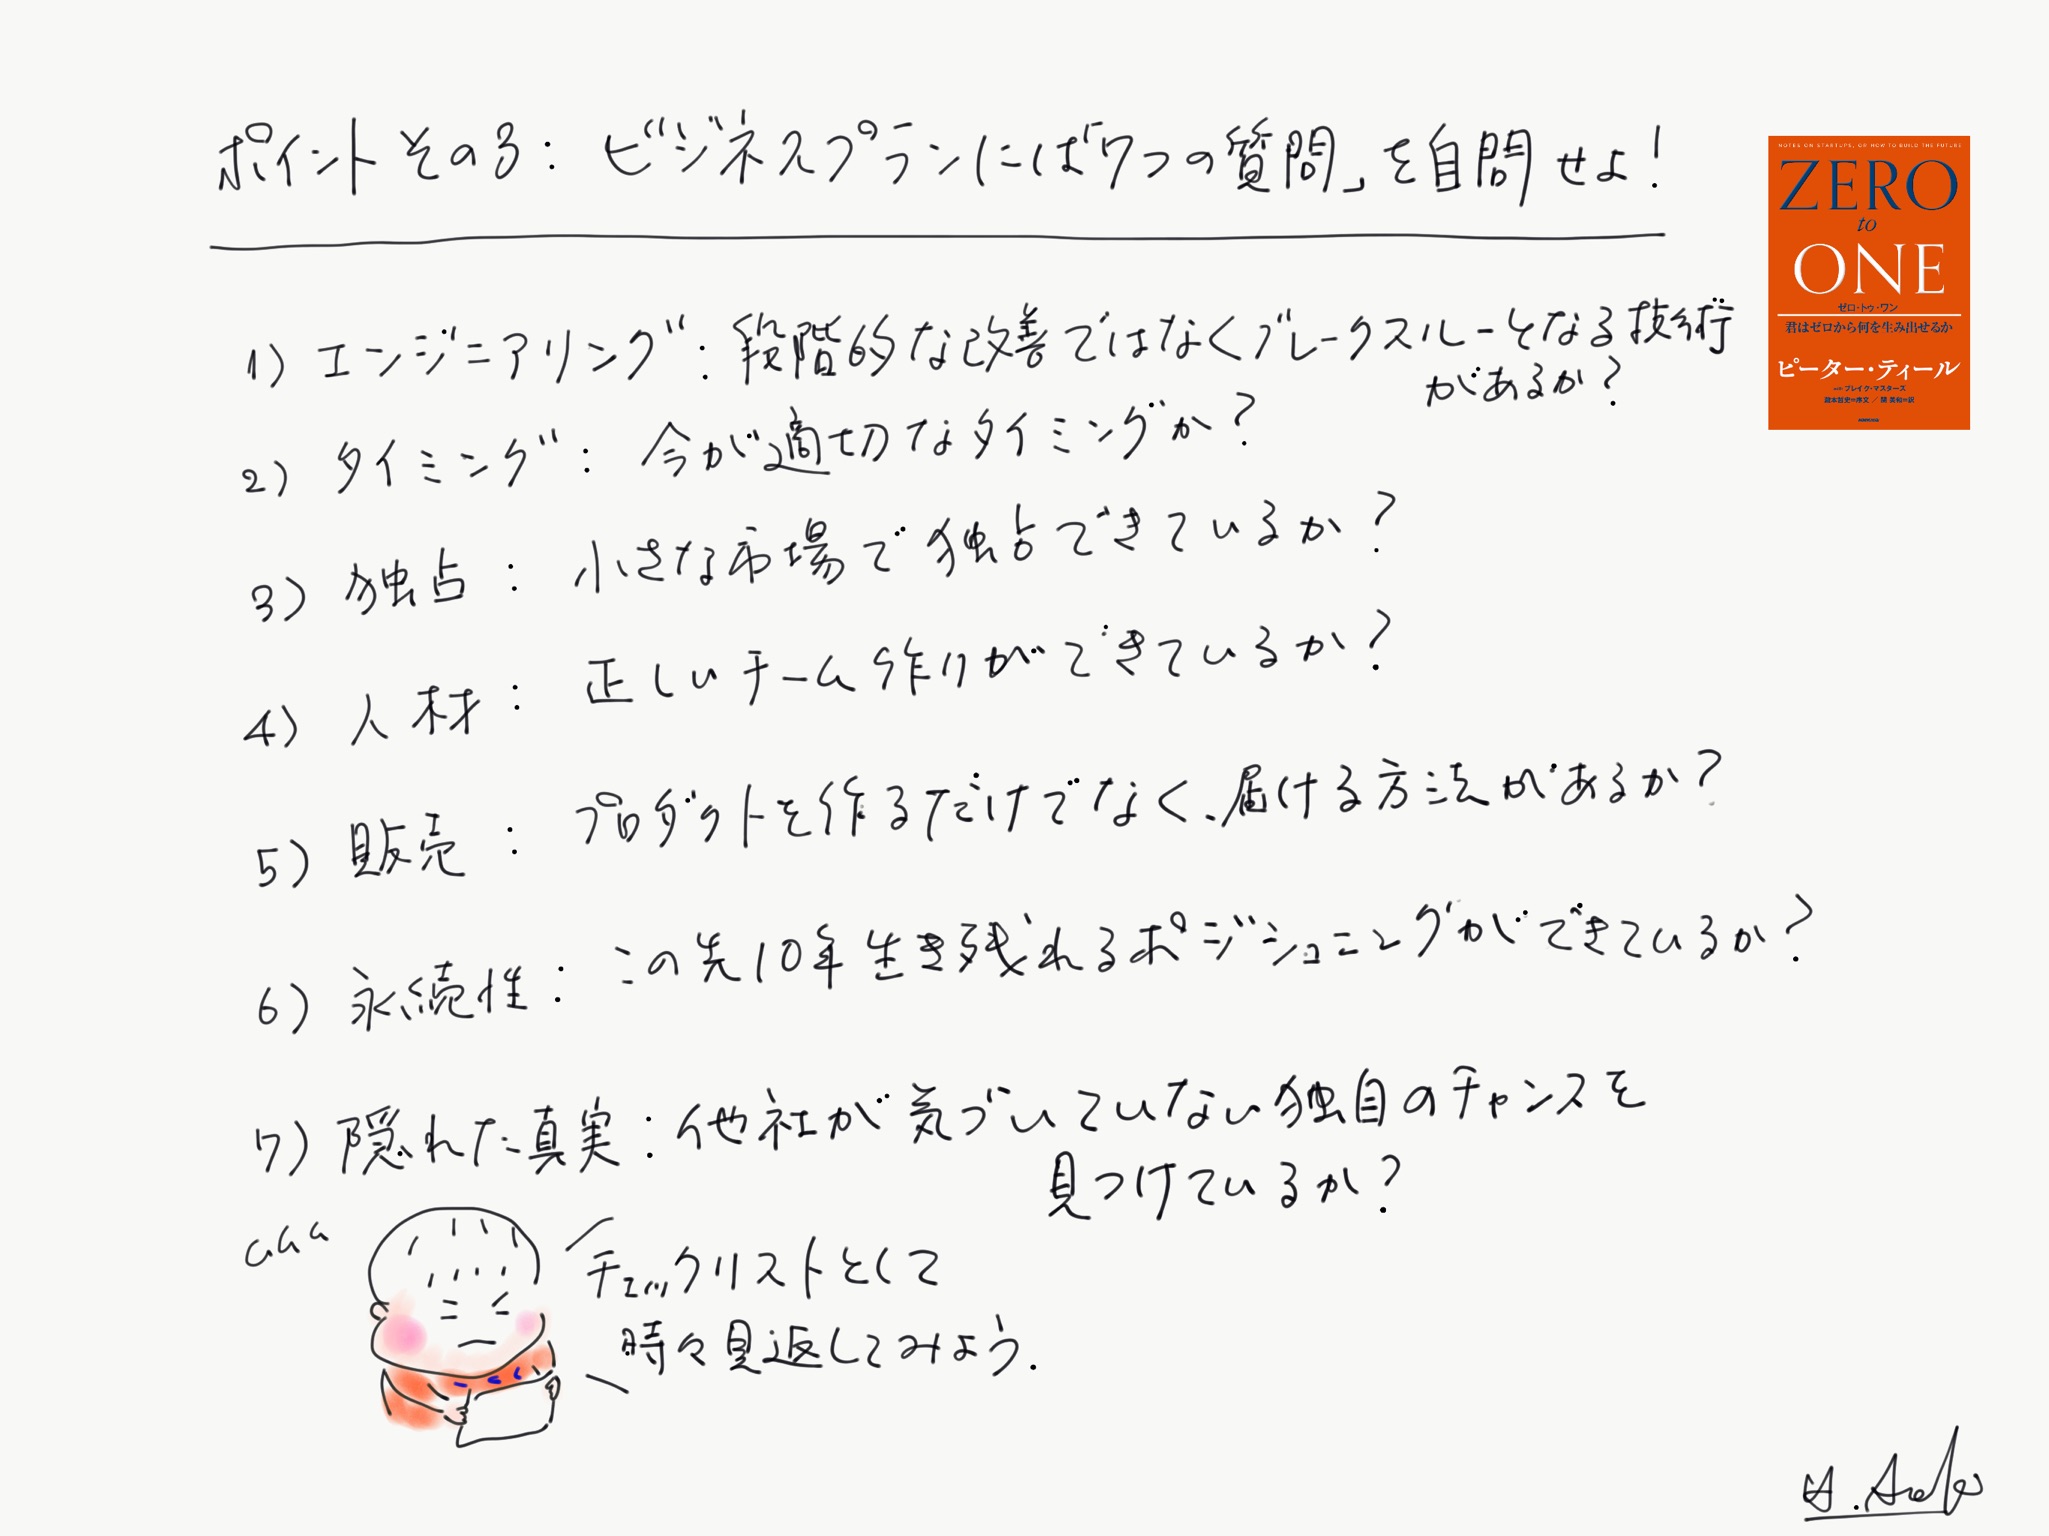 ポイントその3: ビジネスプランには「7つの質問」を自問せよ!
NOTES ON STARTUPS, OR HOW TO BUILD THE FUTURE
ZERO
to
ONE
ゼロ・トゥ・ワン
君はゼロから何を生み出せるか
ピーター・ティール
with ブレイク・マスターズ
瀧本哲史=序文 / 関 美和=訳
1) エンジニアリング: 段階的な改善ではなくブレークスルーとなる技術
があるか?
2) タイミング: 今が適切なタイミングか?
3) 独占: 小さな市場で独占できているか?
4) 人材: 正しいチーム作りができているか?
5) 販売: プロダクトを作るだけでなく、届ける方法があるか?
6) 永続性: この先10年生き残れるポジショニングができているか?
7) 隠れた真実: 他社が気づいていない独自のチャンスを
見つけているか?
チェックリストとして
時々見返してみよう.